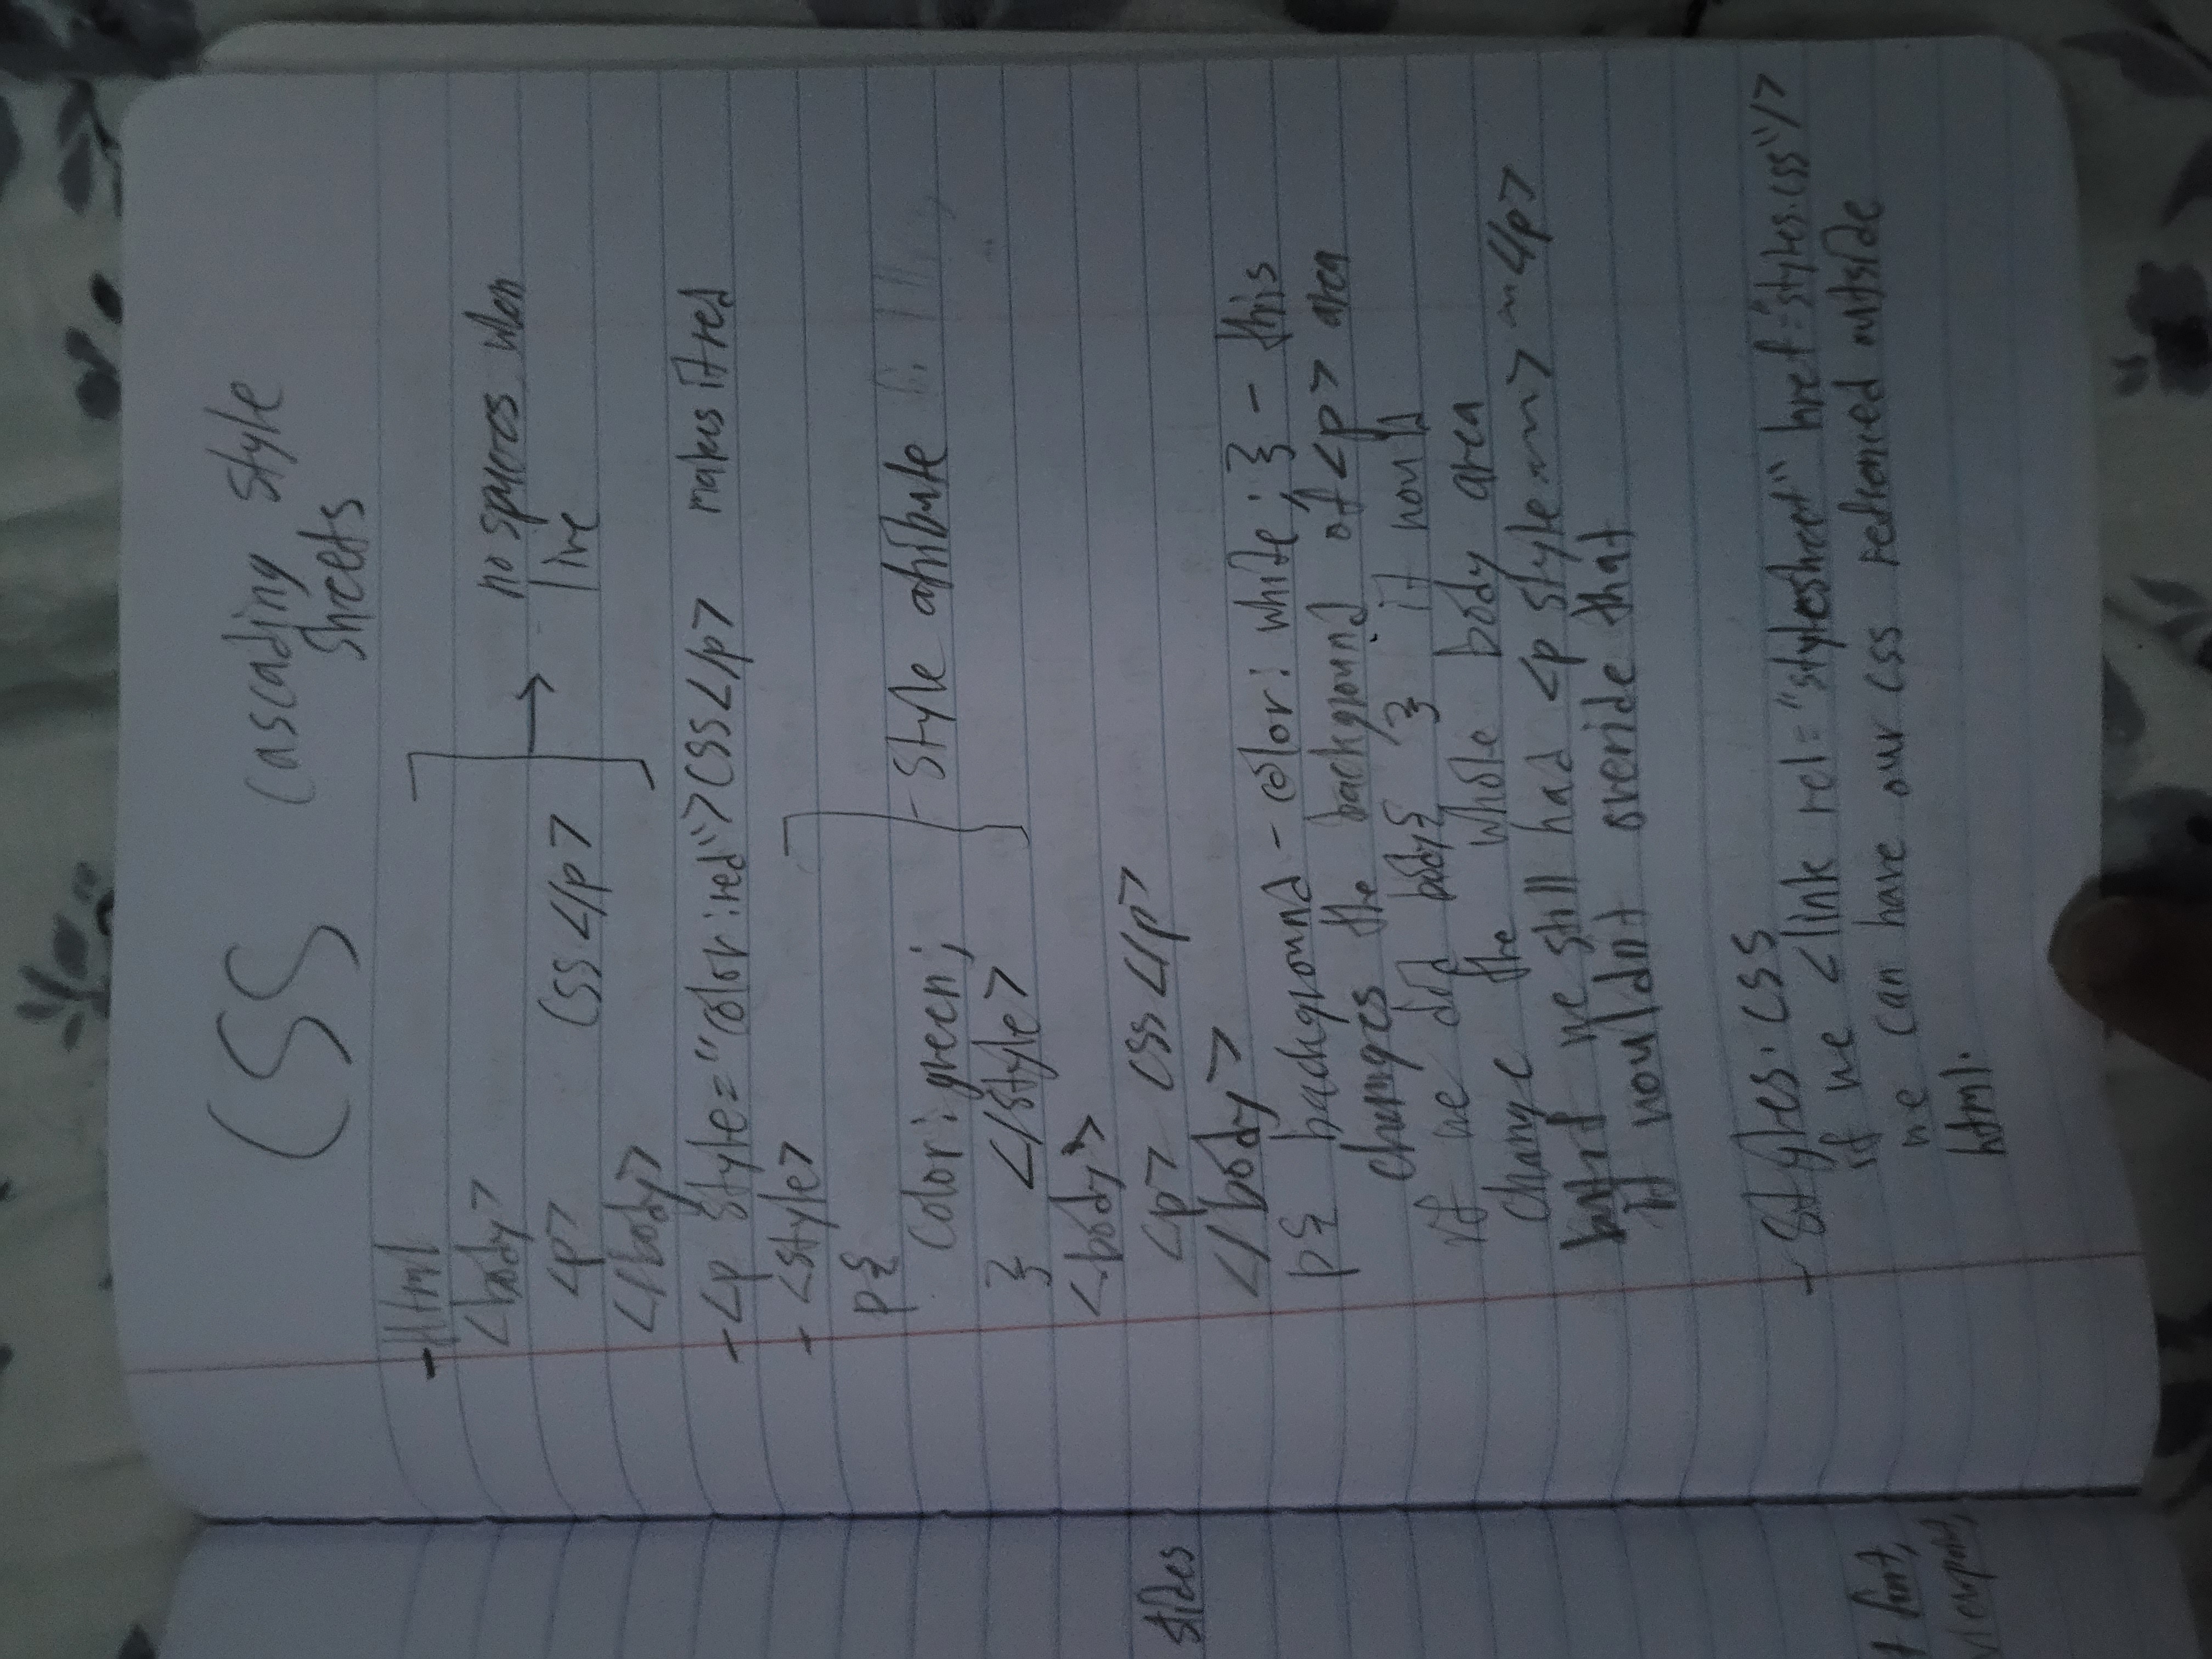 CSS Cascading Style
Sheets
- Html
<body>
<p> CSS </p>
</body>
no spaces when
live
- <p style="color:red">CSS</p> makes it red
- <style>
p{
color: green;
} </style>
Style atribute
<body>
<p> CSS </p>
</body>
p{ background-color: white; } - this
changes the background of <p> area
if we did body{ } it would
change the whole body area
but if we still had <p style~~> ~</p>
it wouldn't overide that
- styles.css
if we <link rel="stylesheet" href="styles.css"/>
we can have our css outside
html.
slides
font,